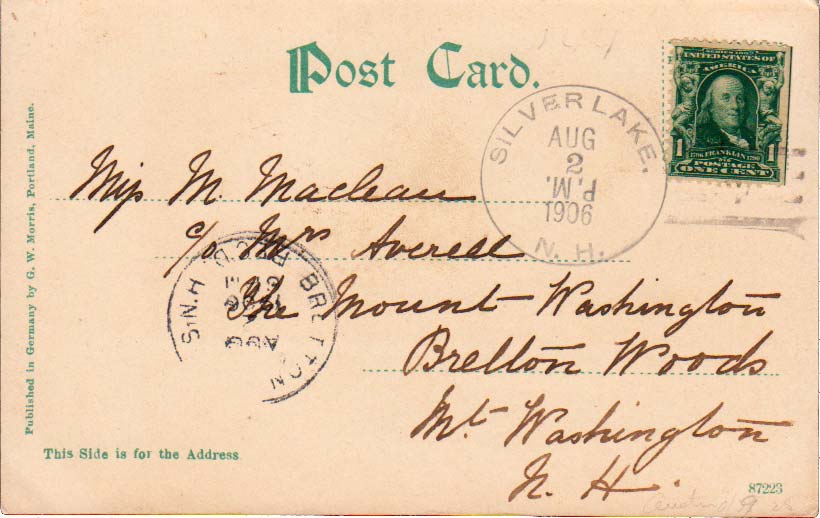 Post Card.
SERIES 1902
UNITED STATES OF
AMERICA
1 1
1706 FRANKLIN 1790
POSTAGE
ONE CENT
SILVER LAKE,
AUG
2
P.M.
1906
N. H.
Miss M Maclean
c/o Mrs Averell
The Mount Washington
Bretton Woods
Mt. Washington
N. H.
BRETTON
N.H.
AUG
REC'D
Published in Germany by G. W. Morris, Portland, Maine.
This Side is for the Address
87223